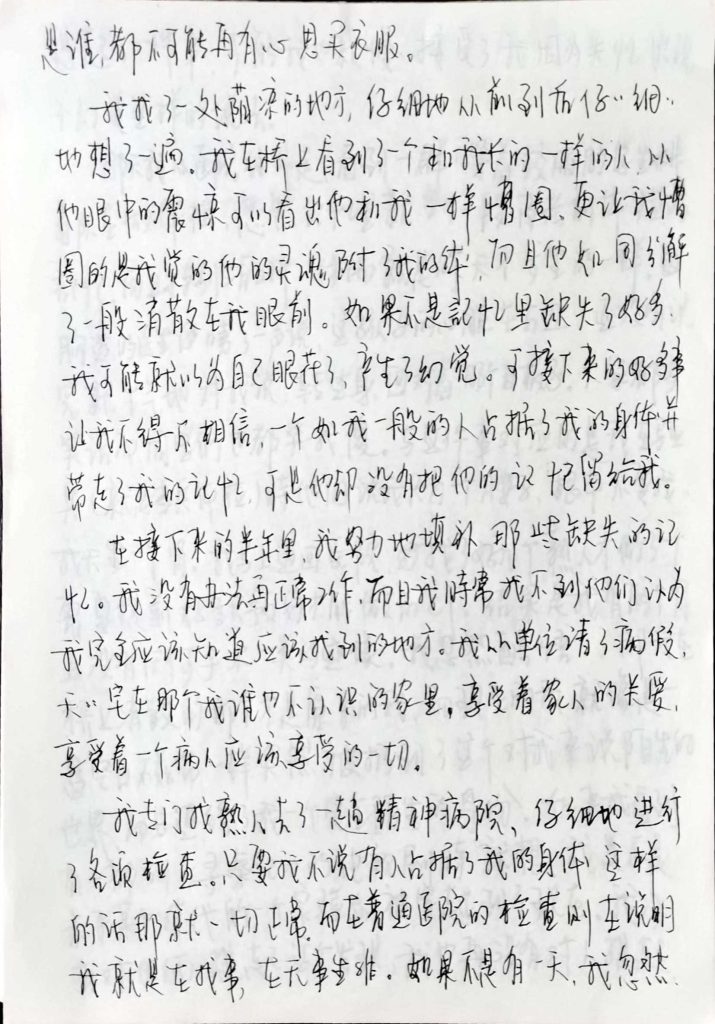 是谁,都不可能再有心思买衣服。
我找了一处荫凉的地方,仔细地从前到后仔〃细〃
地想了一遍。我在桥上看到了一个和我长的一样的人,从
他眼中的震惊可以看出他和我一样懵圈,更让我懵
圈的是我觉的他的灵魂附了我的体,而且他如同分解
了一般消散在我眼前。如果不是記忆里缺失了好多,
我可能就以为自己眼花了,产生了幻觉。可接下来的好多事
让我不得不相信,一个如我一般的人占据了我的身体并
带走了我的记忆,可是他却没有把他的记忆留给我。
在接下来的半年里,我努力地填补那些缺失的记
忆。我没有办法再正常工作,而且我時常找不到他们认为
我完全应该知道应该找到的地方。我从单位请了病假,
天〃宅在那个我谁也不认识的家里。享受着家人的关爱,
享受着一个病人应该享受的一切。
我专门找熟人去了一趟精神病院、仔细地进行
了各项检查。只要我不说有人占据了我的身体这样
的话那就一切正常,而在普通医院的检查则在说明
我就是在找事,在无事生非。如果不是有一天,我忽然